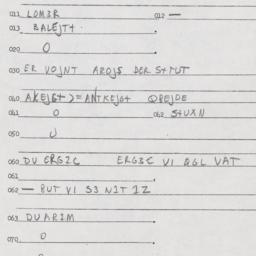 011 LOMBR 012 —
013 BALEJT+.
020 O
030 ER VOJNT AROJS DER S+TUT
040 AKEJG+ >= ANTKEJG+ QPEJDE
041 O 042 S+UXN
050 U
060 DU ERGZC ERG3C VI QGL VAT
061
062 — BUT VI S3 NIT IZ
063 DUARIM
070 O